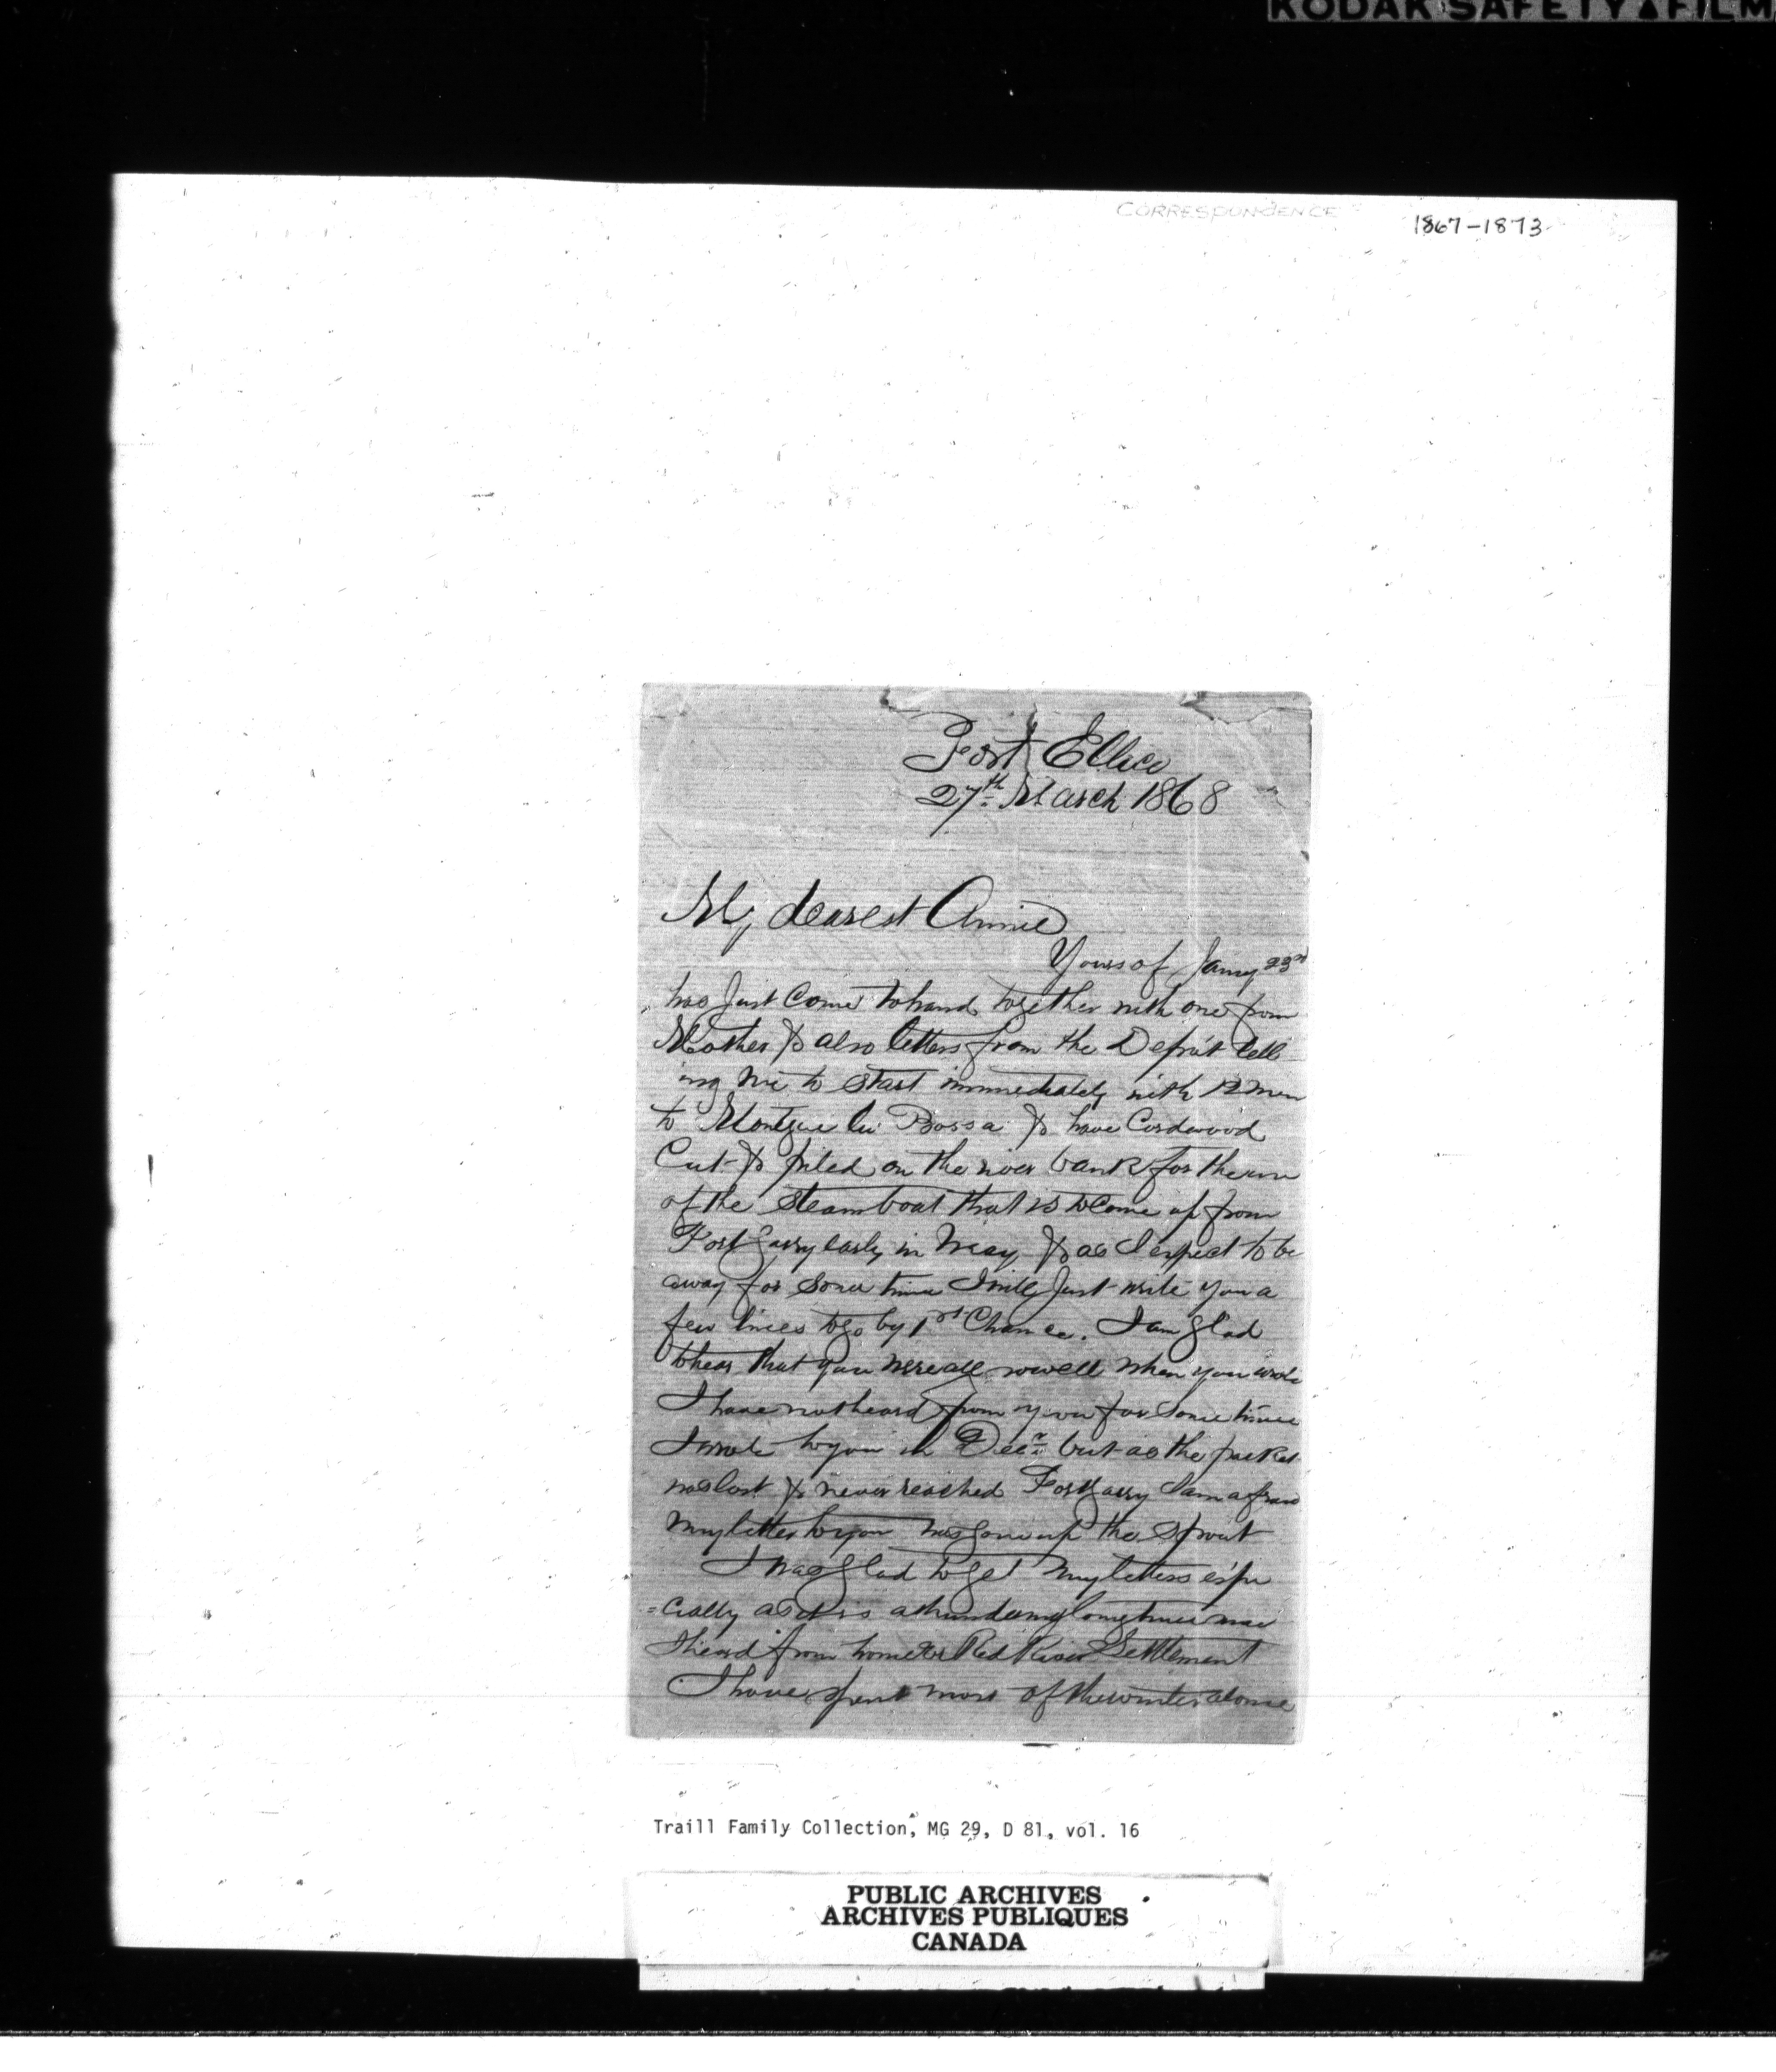 KODAK SAFETY FILM
CORRESPONDENCE
1867-1873
Fort Ellice
27th March 1868
My dearest Annie
Yours of Jany 23rd
has just come to hand together with one from
Mother & also letters from the Depôt tell-
ing me to start immediately with 12 men
to Montque Bossa & have Cordwood
Cut & piled on the river bank for the use
of the Steamboat that is to Come up from
Fort Garry early in May & as I expect to be
away for some time I will Just write you a
few lines to go by 1st Chance. I am glad
to hear that you were all so well when you wrote
I have not heard from you for some time
I wrote to you in Decr but as the packet
was lost & never reached Fort Garry I am afraid
my letter to you has gone up the Spout
I was glad to get my letters espe
=cially as it is a thundering long time since
I heard from home or Red River Settlement
I have spent most of the winter alone
Traill Family Collection, MG 29, D 81, vol. 16
PUBLIC ARCHIVES
ARCHIVES PUBLIQUES
CANADA